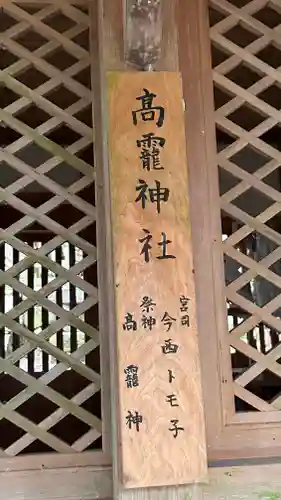 高龗神社
宮司 今西トモ子
祭神 高龗神